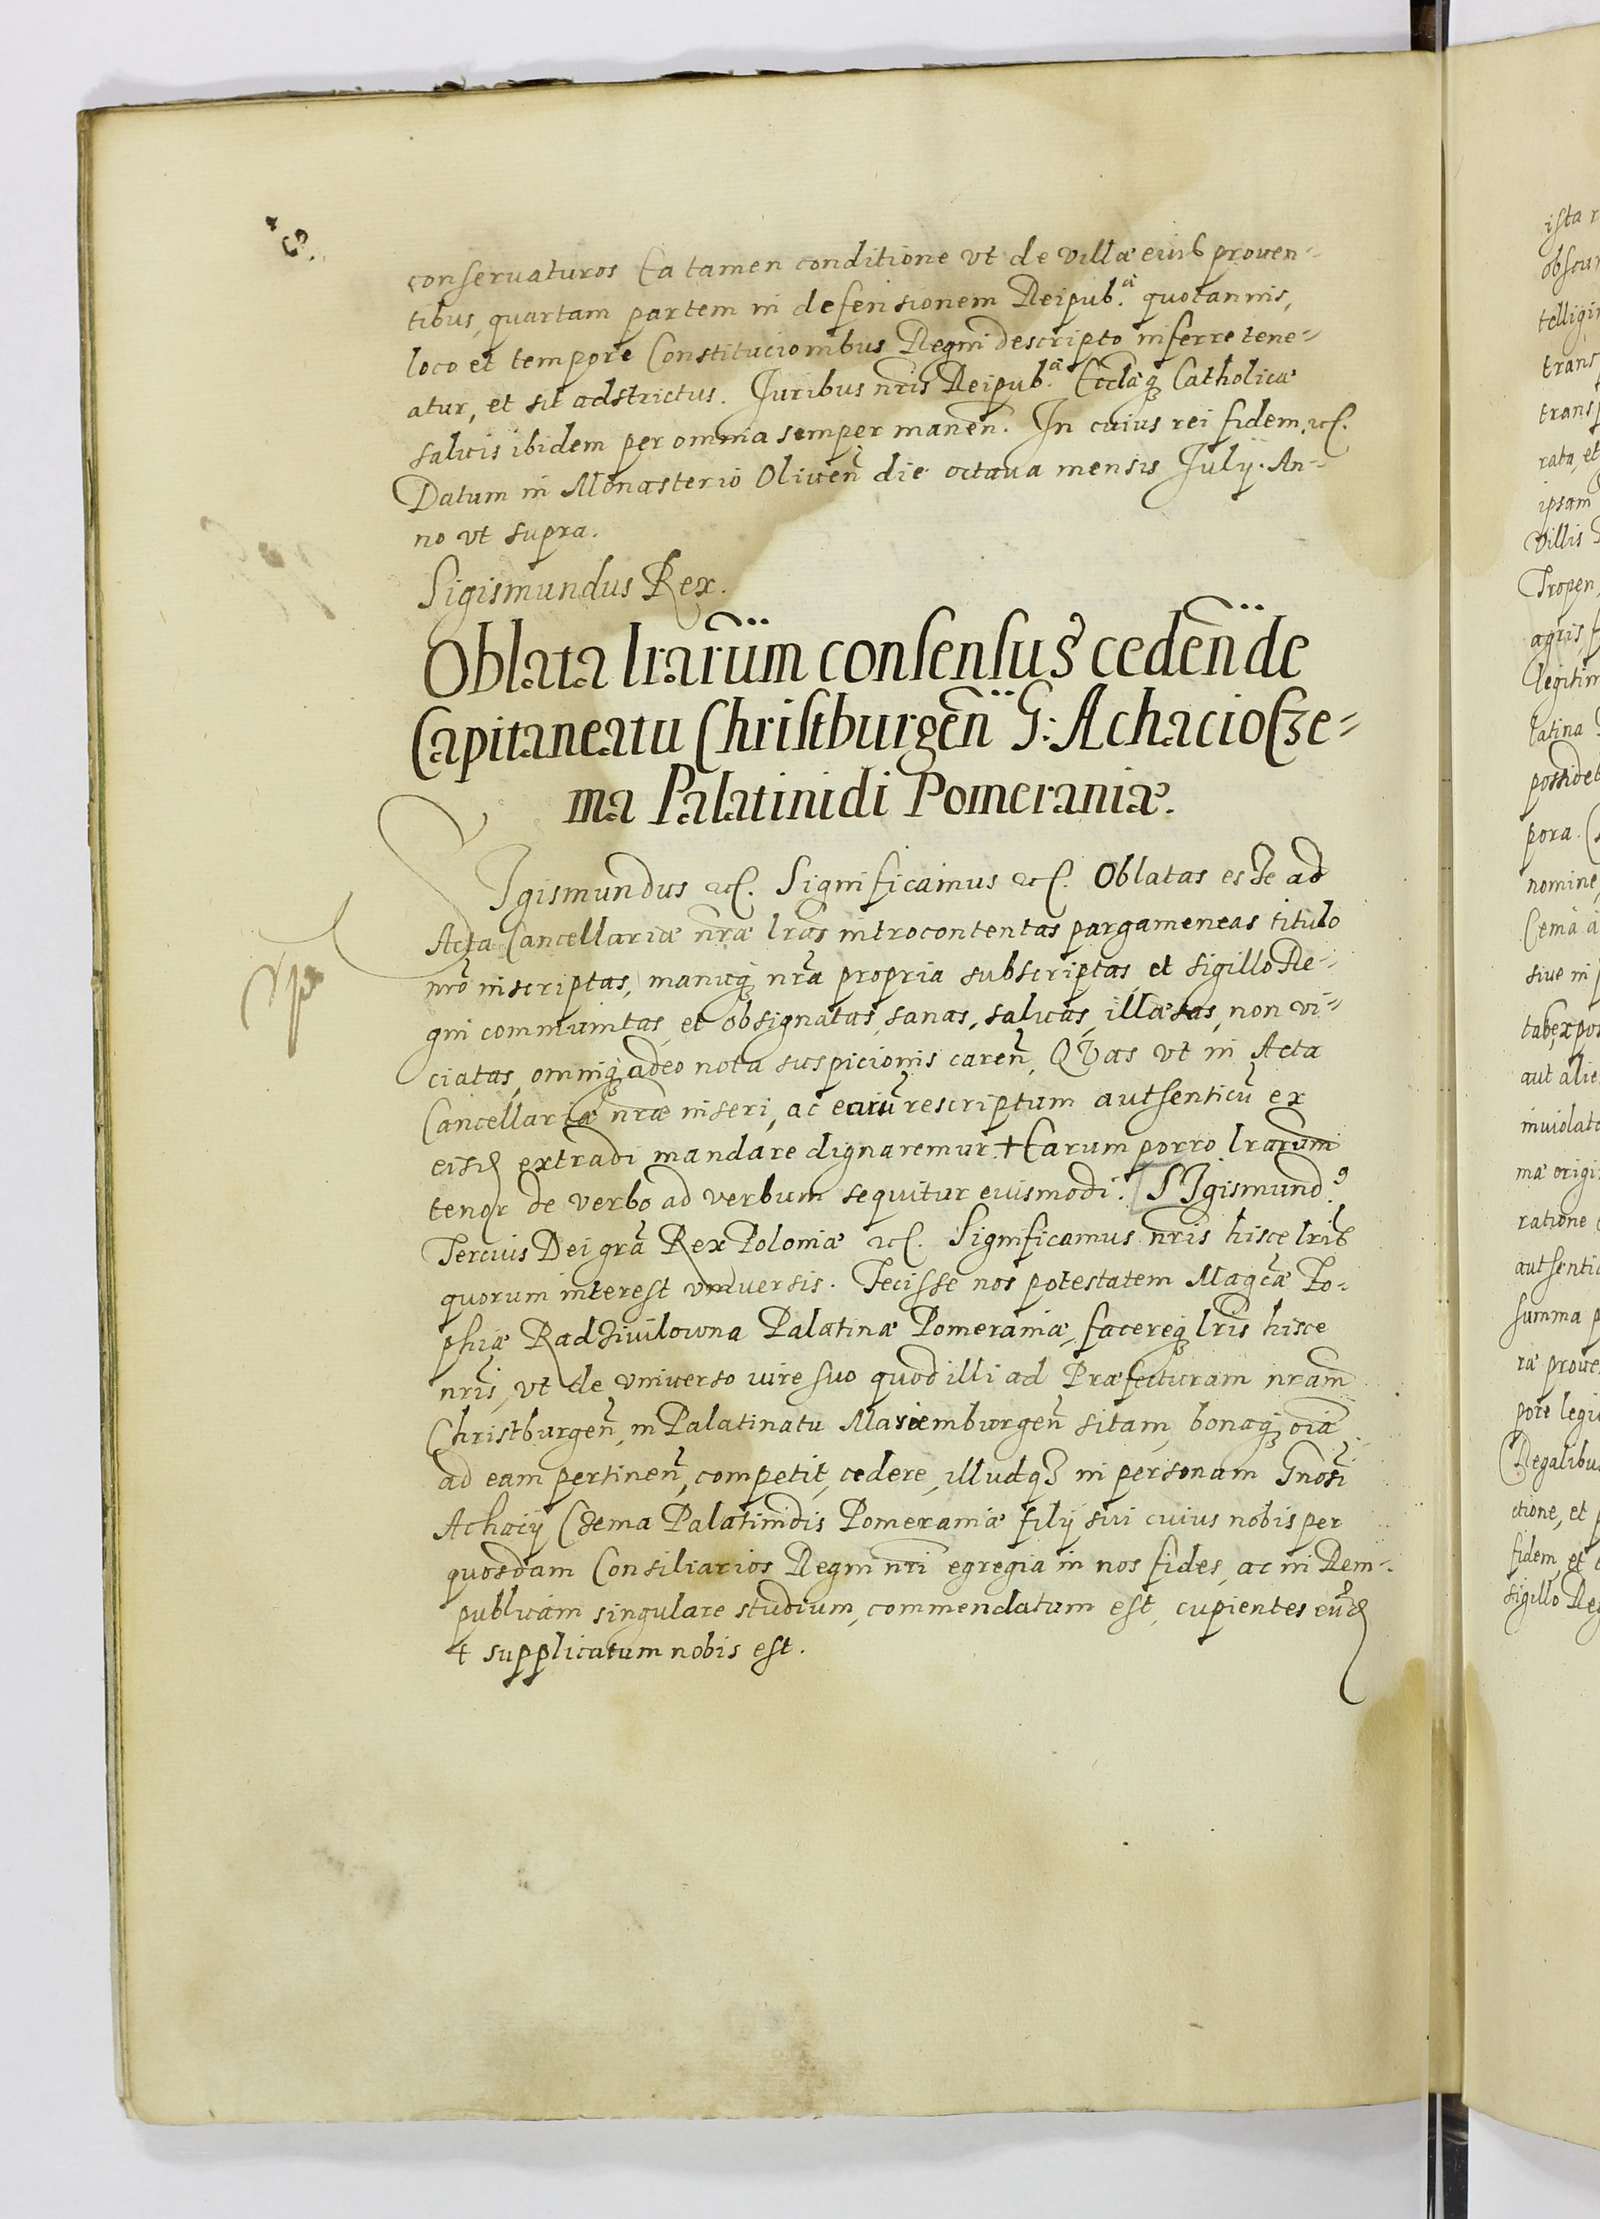 conseruaturos Ea tamen conditione vt de villæ eius prouen-
tibus, quartam partem in defensionem Reipub.ᵃ quotannis,
loco et tempore Constitucionibus Regni descripto inferre tene-
atur, et sit adstrictus. Juribus nr̃is Reipub.ᵃ Eccl̃æq₃ Catholicæ
saluis ibidem per omnia semper maneñ. In cuius rei fidem. etc.
Datum in Monasterio Oliueñ die octaua mensis July. An-
no vt supra.
Sigismundus Rex.
Oblata lr̃arum consensus cedeñde
Capitaneatu Christburgeñ G: Achacio Cze-
ma Palatinidi Pomeraniæ.
SIgismundus etc. Significamus etc. Oblatas esse ad
Acta Cancellariæ nr̃æ lr̃as introcontentas pargameneas titulo
nr̃o inscriptas, manuq₃ nr̃a propria subscriptas, et sigillo Re-
gni communitas et obsignatas, sanas, saluas, illæsas, non vi-
ciatas, omniq₃ adeo nota suspicionis careñ, QVas vt in Acta
Cancellariæ nr̃æ inseri, ac earũ rescriptum autsenticũ ex
eisd extradi mandare dignaremur. + Earum porro lr̃arum
tenor de verbo ad verbum sequitur euismodi. [SIgismund⁹
Tercius Dei gr̃a Rex Poloniæ etc. Significamus nr̃is hisce lr̃is
quorum interest vniuersis. Fecisse nos potestatem Magc̃æ Zo-
phiæ Radziwilowna Palatinæ Pomeraniæ, facereq₃ lr̃is hisce
nr̃is, vt de vniuerso iure suo quod illi ad Præfecturam nr̃am
Christburgeñ, in Palatinatu Mariemburgeñ sitam, bonaq₃ oĩa
ad eam pertineñ, competit, cedere, illudq₃ in personam Gnõsi
Achacij Czema Palatinidis Pomeraniæ filij sui cuius nobis per
quosdam Consiliarios Regni nr̃i egregia in nos fides, ac in Rem-
publicam singulare studium, commendatum est, cupientes eund
+ supplicatum nobis est.